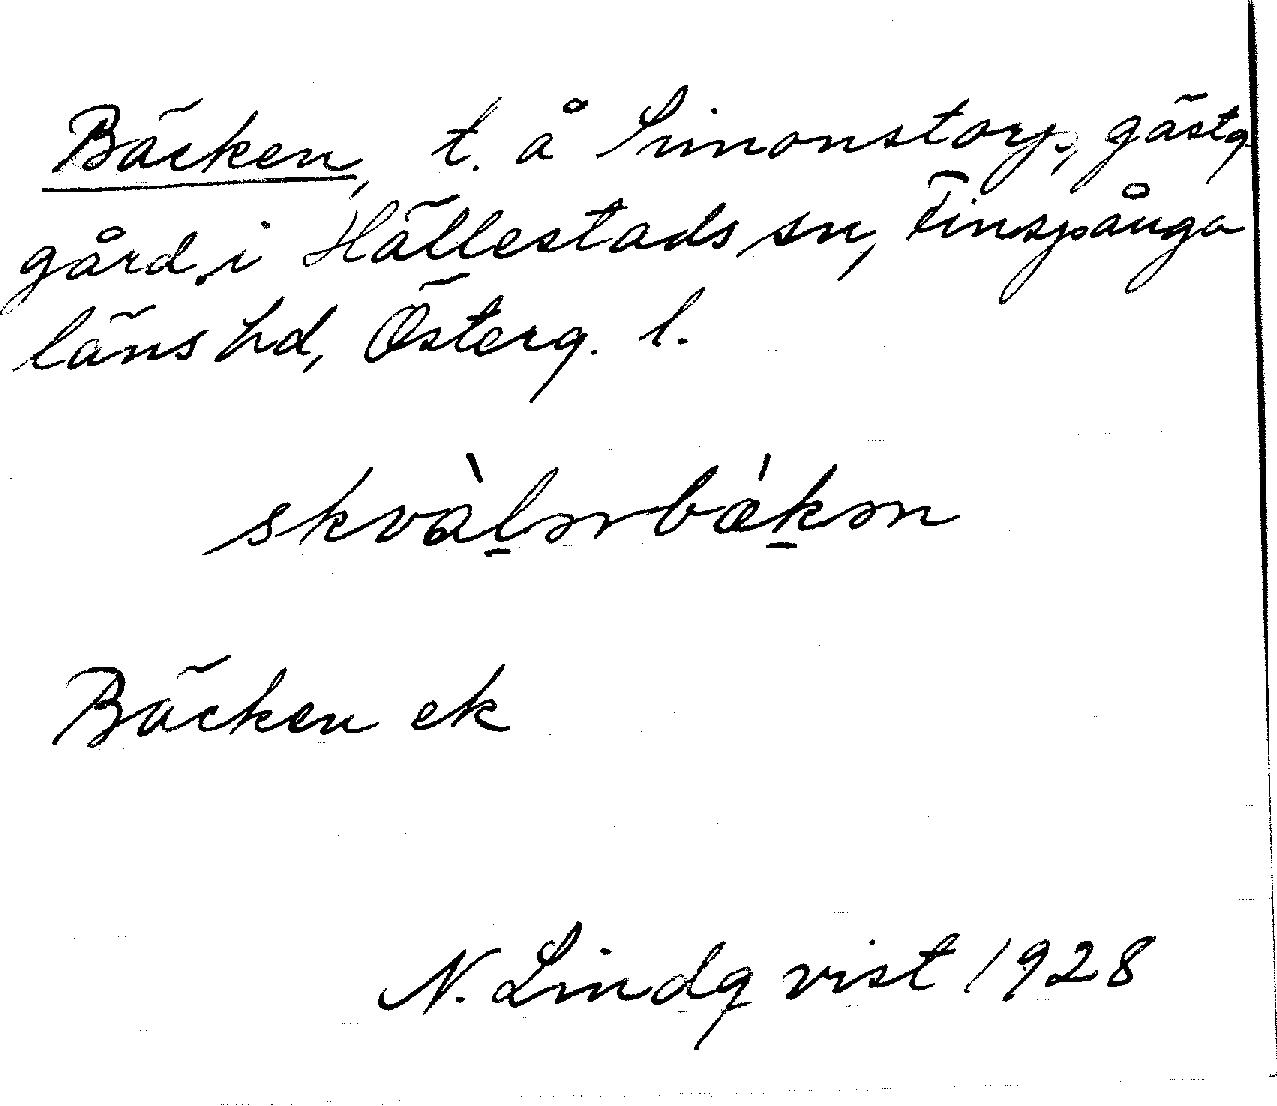 Bäcken, t. å Simonstorp, gästg
gård, i Hällestads sn, Finspånga
läns hd, Österg. l.
skvàlərbákən
Bäcken ek
N. Lindqvist 1928